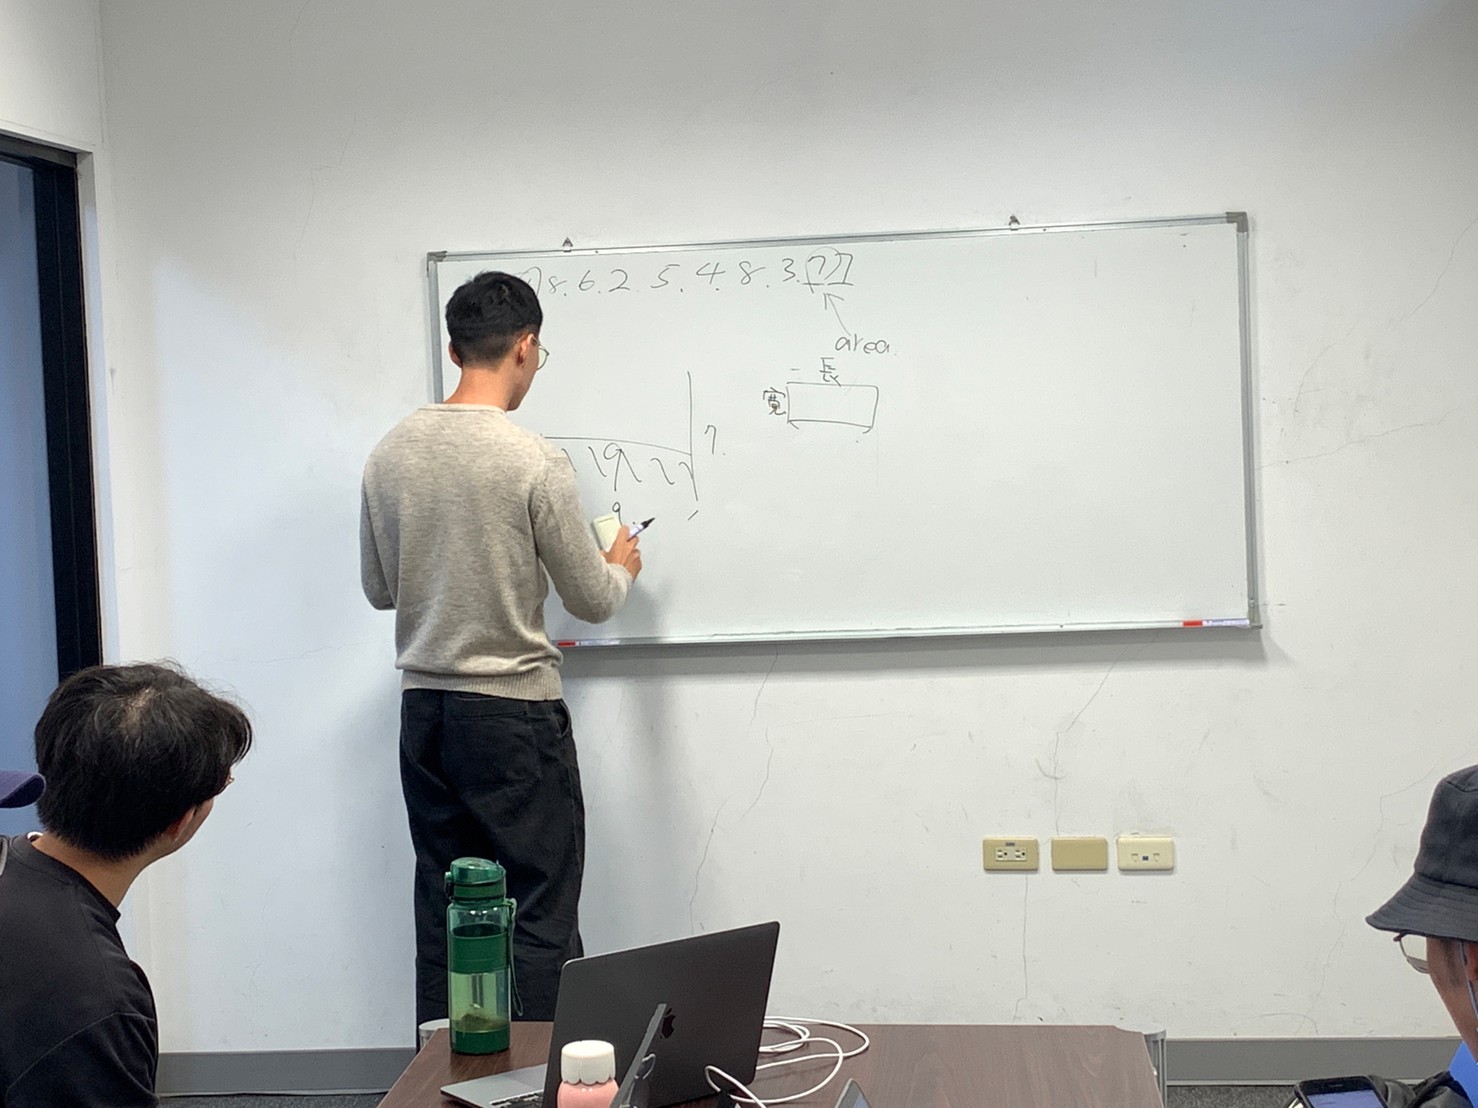 8.6.2.5.4.8.3.7]
area
長
寬
7
9